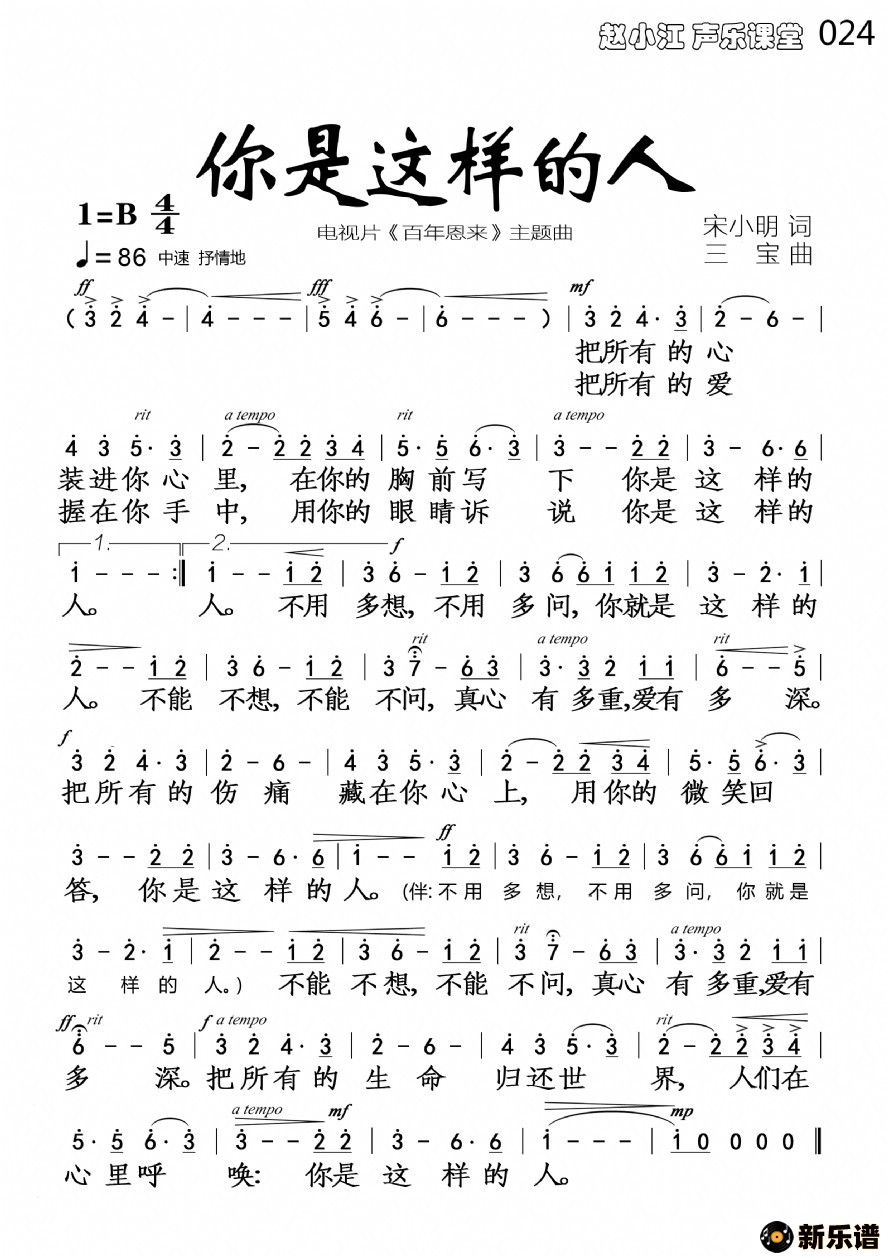 赵小江 声乐课堂 024
你是这样的人
1=B 4/4
♩=86 中速 抒情地
电视片《百年恩来》主题曲
宋小明 词
三 宝 曲
ff fff mf
( 3 2 4 - | 4 - - - | 5 4 6 - | 6 - - - ) | 3 2 4· 3 | 2 - 6 - |
把所有的心
把所有的爱
rit a tempo rit a tempo
4 3 5· 3 | 2 - 2 2 3 4 | 5· 5 6· 3 | 3 - - 2 2 | 3 - 6· 6 |
装进你心里, 在你的胸前写下 你是这样的
握在你手中, 用你的眼睛诉说 你是这样的
1. 2. f
1 - - - :| 1 - - 1 2 | 3 6 - 1 2 | 3 6 6 1 1 2 | 3 - 2· 1 |
人。 人。 不用多想, 不用多问, 你就是这样的
rit a tempo rit
2 - - 1 2 | 3 6 - 1 2 | 3 7 - 6 3 | 3· 3 2 1 1 | 6 - - 5 |
人。 不能不想, 不能不问, 真心有多重,爱有多深。
f
3 2 4· 3 | 2 - 6 - | 4 3 5· 3 | 2 - 2 2 3 4 | 5· 5 6· 3 |
把所有的伤痛 藏在你心上, 用你的微笑回
ff
3 - - 2 2 | 3 - 6· 6 | 1 - - 1 2 | 3 6 - 1 2 | 3 6 6 1 1 2 |
答, 你是这样的人。(伴:不用多想, 不用多问, 你就是
rit a tempo
3 - 2· 1 | 2 - - 1 2 | 3 6 - 1 2 | 3 7 - 6 3 | 3· 3 2 1 1 |
这样的人。) 不能不想, 不能不问, 真心有多重,爱有
ff rit f a tempo rit
6 - - 5 | 3 2 4· 3 | 2 - 6 - | 4 3 5· 3 | 2 - 2 3 4 |
多深。把所有的生命 归还世界, 人们在
a tempo mf mp
5· 5 6· 3 | 3 - - 2 2 | 3 - 6· 6 | 1 - - - | 1 0 0 0 0 ‖
心里呼唤: 你是这样的人。
新乐谱